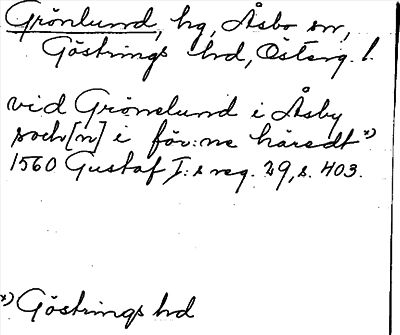 Grönlund, hg, Åsbo sn,
Göstrings hd, Österg. l.
vid Grönelund i Åsby
soch[n] i för:ne häredt x)
1560 Gustaf I:s reg. 29, s. 403.
x) Göstrings hd